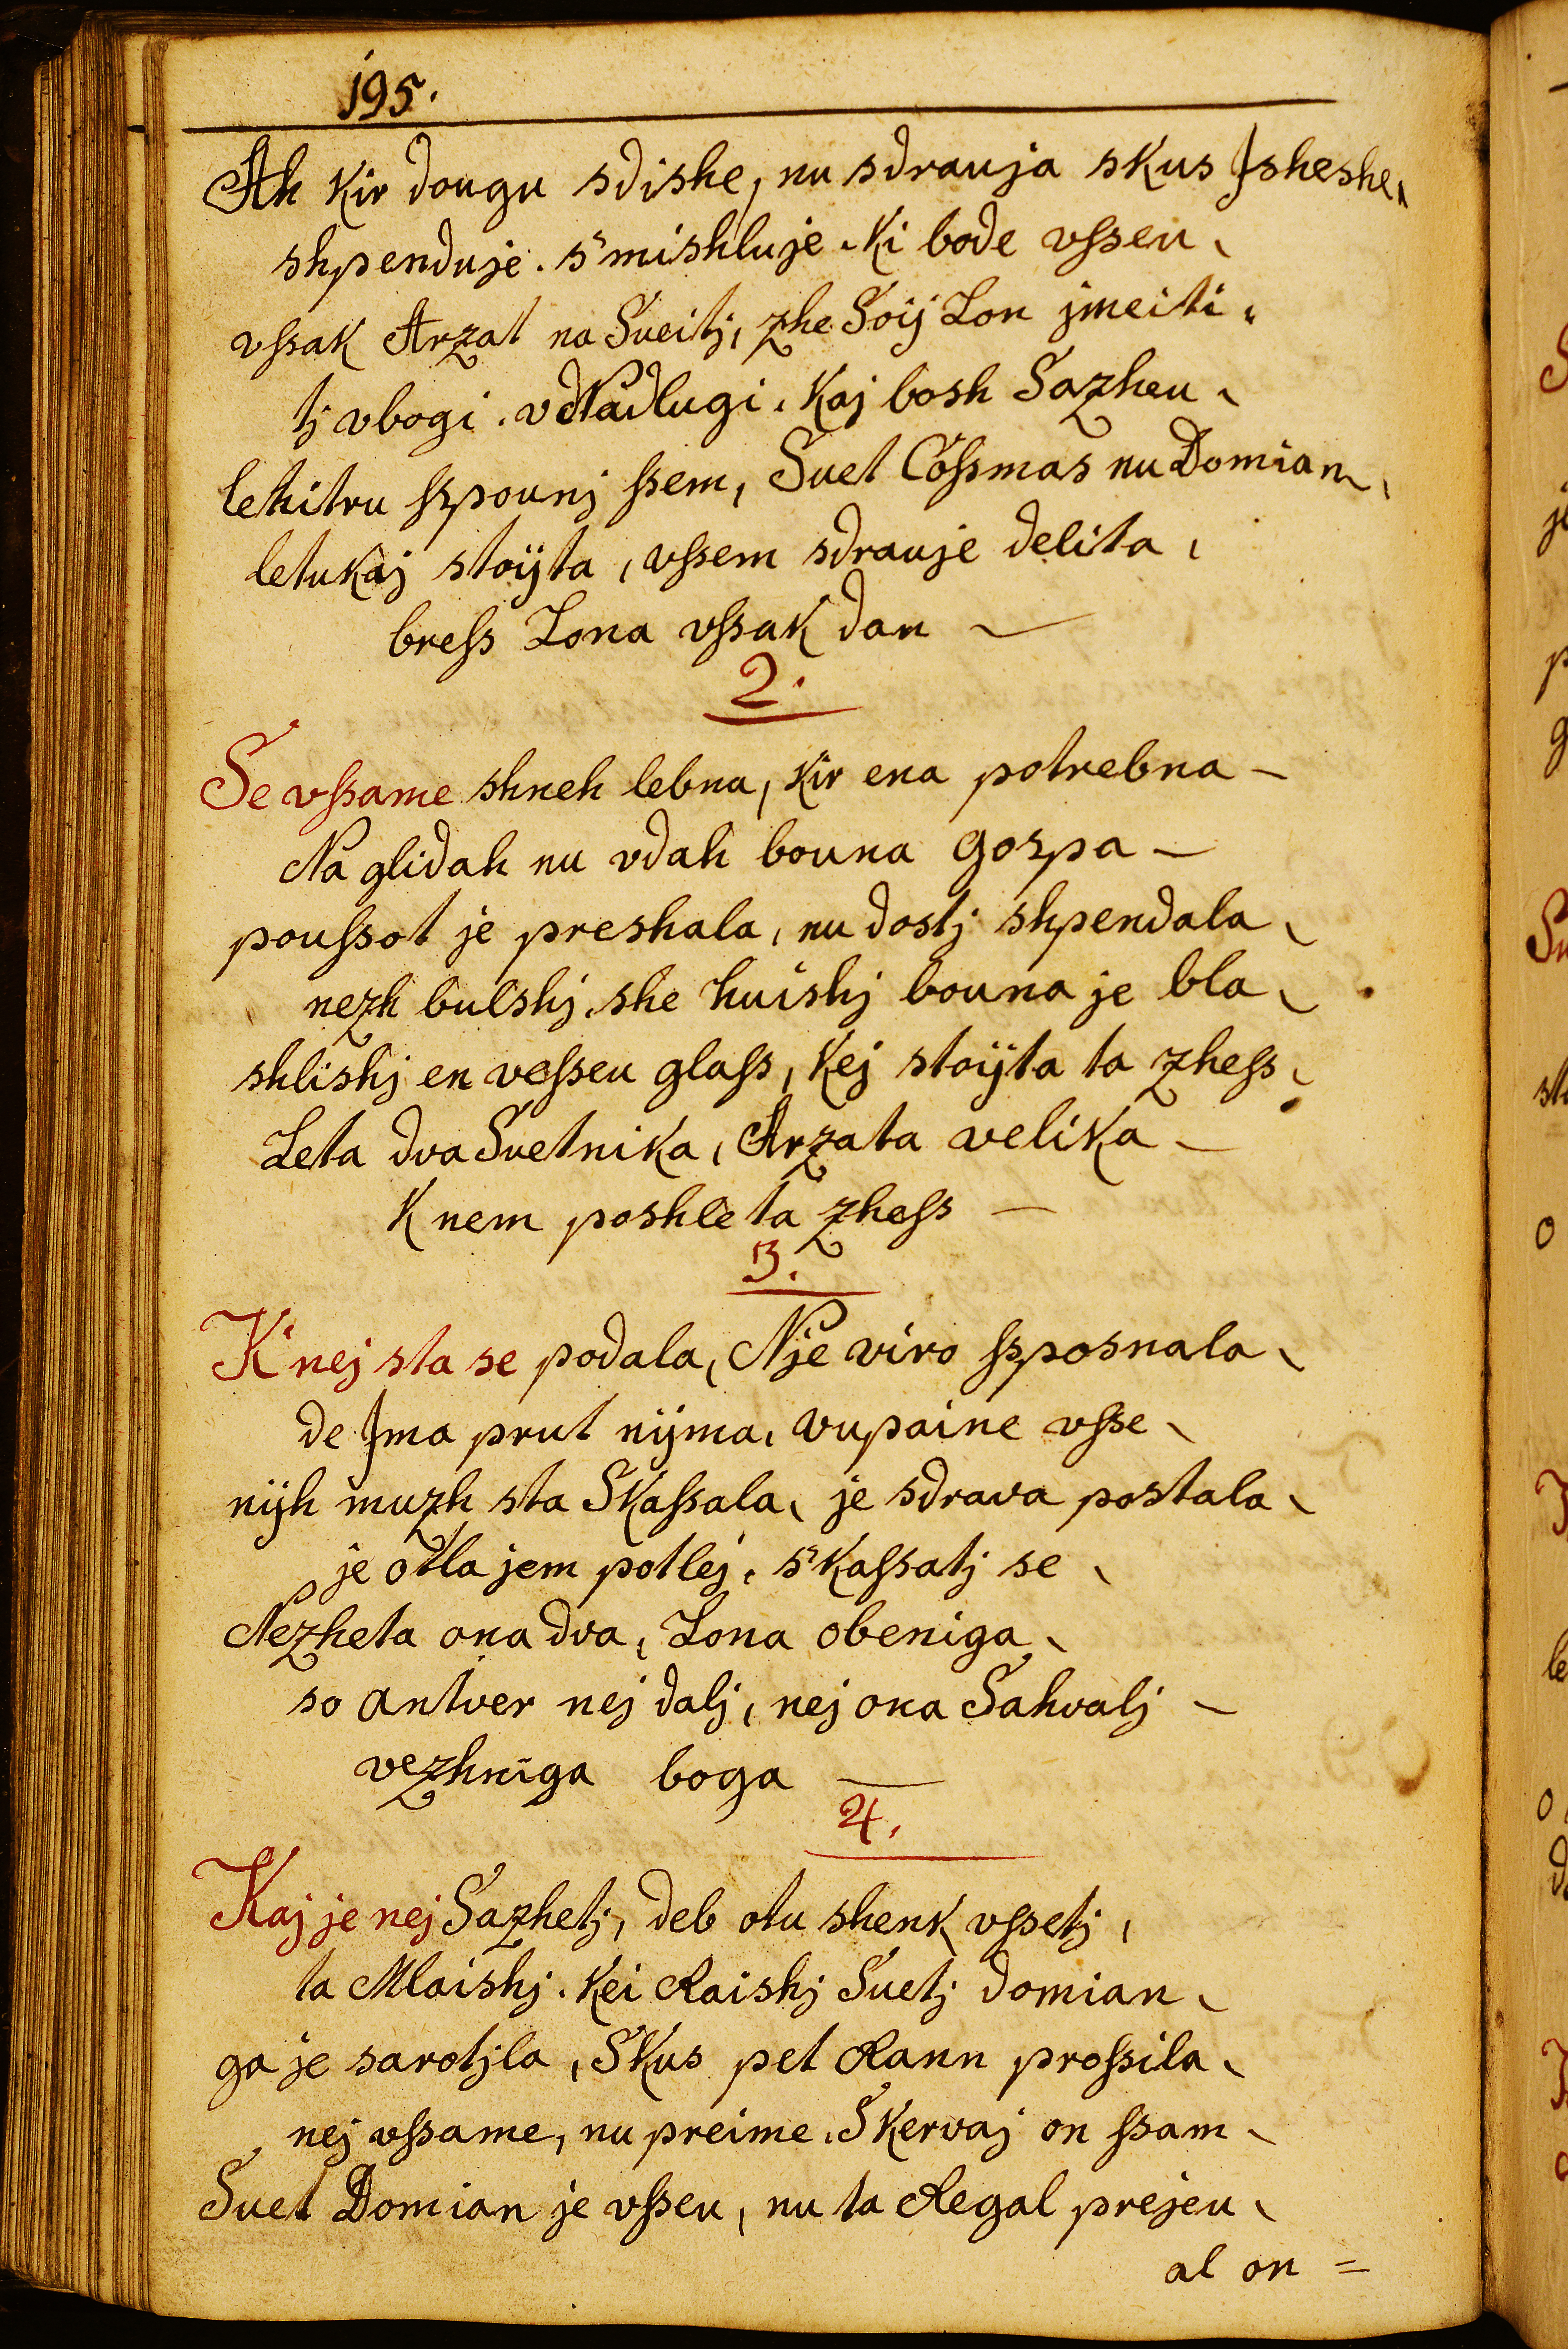 195.
Ah kir dougu sdishe, nu sdrauja skus Jsheshe,
shpenduje. s'mishluje. ki bode vſseu,
vſsak Arzat na Sueitj, zhe Soij Lon jmeiti,
tj vbogi. vd Nadlugi. kaj bosh Sazheu,
lehitru ſspounj ſsem, Suet Coſsmas nu Domian,
letukaj stoijta, vſsem sdrauje delita,
breſs Lona vſsak dan —
2.
Se vſsame shneh lebna, kir ena potrebna —
Na glidah nu vdah bouna gospa —
pouſsot je preshala, nu dostj shpendala,
nezh bulshj, she huishj bouna je bla,
shlishj en veſseu glaſs, kej stoijta ta zheſs,
Leta dva Suetnika, Arzata velika —
K nem poshle ta zheſs —
3.
K'nej sta se podala, Nje viro ſsposnala,
de Jma prut nijma, vupaine vſse,
nijh muzh sta Skaſsala, je sdrava postala,
je otla jem potlej, s'kaſsatj se,
Nezheta ona dva, Lona obeniga,
so antver nej dalj, nej ona Sahvalj —
vezhniga boga —
4.
Kaj je nej Sazhetj, deb otu shenk vſsetj,
ta Mlaishj. kei Raishj Suetj Domian,
ga je sarotjla, Skus pet Rann proſsila,
nej vſsame, nu preime, Skervaj on ſsam,
Suet Domian je vſseu, nu ta Regal prejeu,
al on =